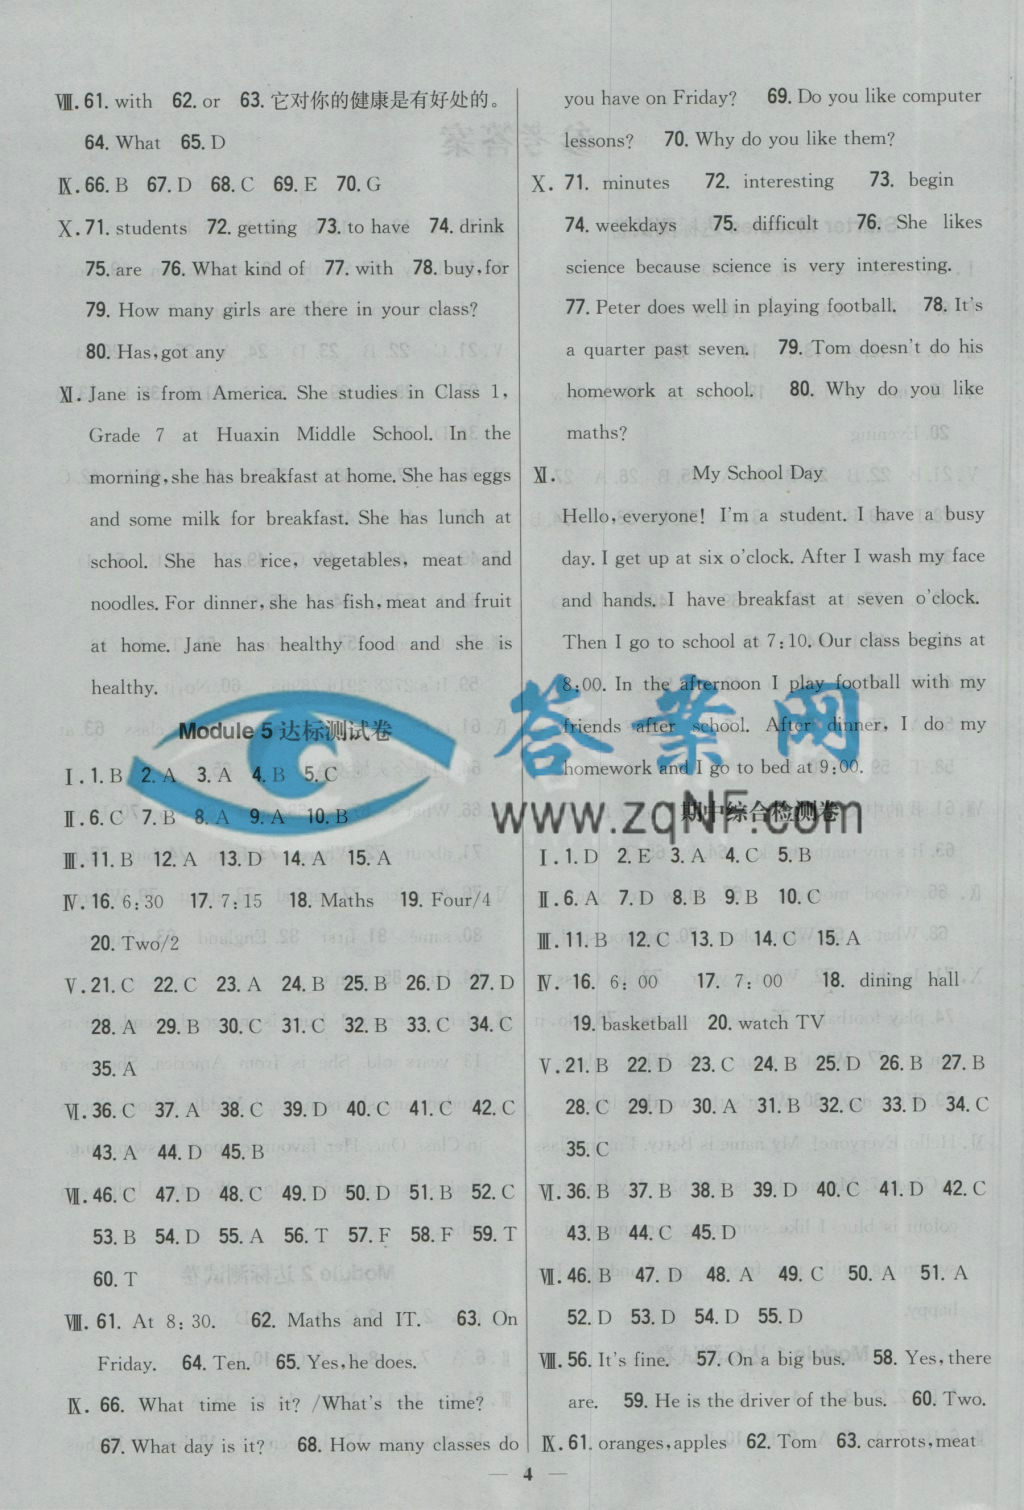 Ⅷ. 61. with 62. or 63. 它对你的健康是有好处的。
64. What 65. D
Ⅸ. 66. B 67. D 68. C 69. E 70. G
Ⅹ. 71. students 72. getting 73. to have 74. drink
75. are 76. What kind of 77. with 78. buy, for
79. How many girls are there in your class?
80. Has, got any
Ⅺ. Jane is from America. She studies in Class 1,
Grade 7 at Huaxin Middle School. In the
morning, she has breakfast at home. She has eggs
and some milk for breakfast. She has lunch at
school. She has rice, vegetables, meat and
noodles. For dinner, she has fish, meat and fruit
at home. Jane has healthy food and she is
healthy.
Module 5 达标测试卷
Ⅰ. 1. B 2. A 3. A 4. B 5. C
Ⅱ. 6. C 7. B 8. A 9. A 10. B
Ⅲ. 11. B 12. A 13. D 14. A 15. A
Ⅳ. 16. 6:30 17. 7:15 18. Maths 19. Four/4
20. Two/2
Ⅴ. 21. C 22. C 23. A 24. B 25. B 26. D 27. D
28. A 29. B 30. C 31. C 32. B 33. C 34. C
35. A
Ⅵ. 36. C 37. A 38. C 39. D 40. C 41. C 42. C
43. A 44. D 45. B
Ⅶ. 46. C 47. D 48. C 49. D 50. D 51. B 52. C
53. B 54. D 55. A 56. T 57. F 58. F 59. T
60. T
Ⅷ. 61. At 8:30. 62. Maths and IT. 63. On
Friday. 64. Ten. 65. Yes, he does.
Ⅸ. 66. What time is it? /What's the time?
67. What day is it? 68. How many classes do
you have on Friday? 69. Do you like computer
lessons? 70. Why do you like them?
Ⅹ. 71. minutes 72. interesting 73. begin
74. weekdays 75. difficult 76. She likes
science because science is very interesting.
77. Peter does well in playing football. 78. It's
a quarter past seven. 79. Tom doesn't do his
homework at school. 80. Why do you like
maths?
Ⅺ. My School Day
Hello, everyone! I'm a student. I have a busy
day. I get up at six o'clock. After I wash my face
and hands. I have breakfast at seven o'clock.
Then I go to school at 7:10. Our class begins at
8:00. In the afternoon I play football with my
friends after school. After dinner, I do my
homework and I go to bed at 9:00.
答案网
www.zqNF.com
期中综合检测卷
Ⅰ. 1. D 2. E 3. A 4. C 5. B
Ⅱ. 6. A 7. D 8. B 9. B 10. C
Ⅲ. 11. B 12. C 13. D 14. C 15. A
Ⅳ. 16. 6:00 17. 7:00 18. dining hall
19. basketball 20. watch TV
Ⅴ. 21. B 22. D 23. C 24. B 25. D 26. B 27. B
28. C 29. D 30. A 31. B 32. C 33. D 34. C
35. C
Ⅵ. 36. B 37. B 38. B 39. D 40. C 41. D 42. C
43. B 44. C 45. D
Ⅶ. 46. B 47. D 48. A 49. C 50. A 51. A
52. D 53. D 54. D 55. D
Ⅷ. 56. It's fine. 57. On a big bus. 58. Yes, there
are. 59. He is the driver of the bus. 60. Two.
Ⅸ. 61. oranges, apples 62. Tom 63. carrots, meat
— 4 —